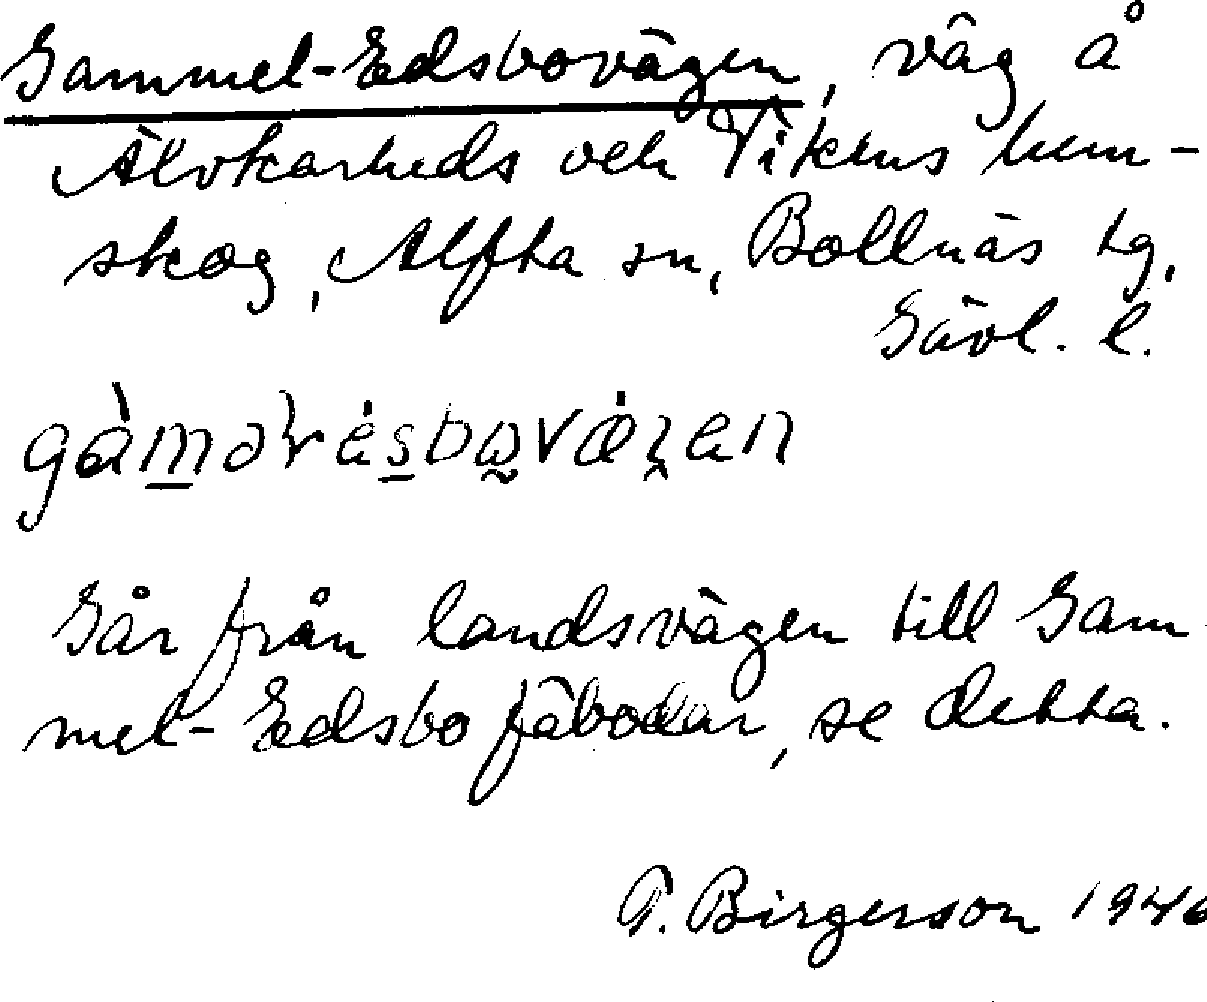 Gammel-Edsbovägen, väg å
Älvkarheds och Vikens hem-
skog, Alfta sn, Bollnäs tg,
Gävl. l.
Går från landsvägen till Gam-
mel-Edsbo fäbodar, se detta.
T. Birgerson 1946